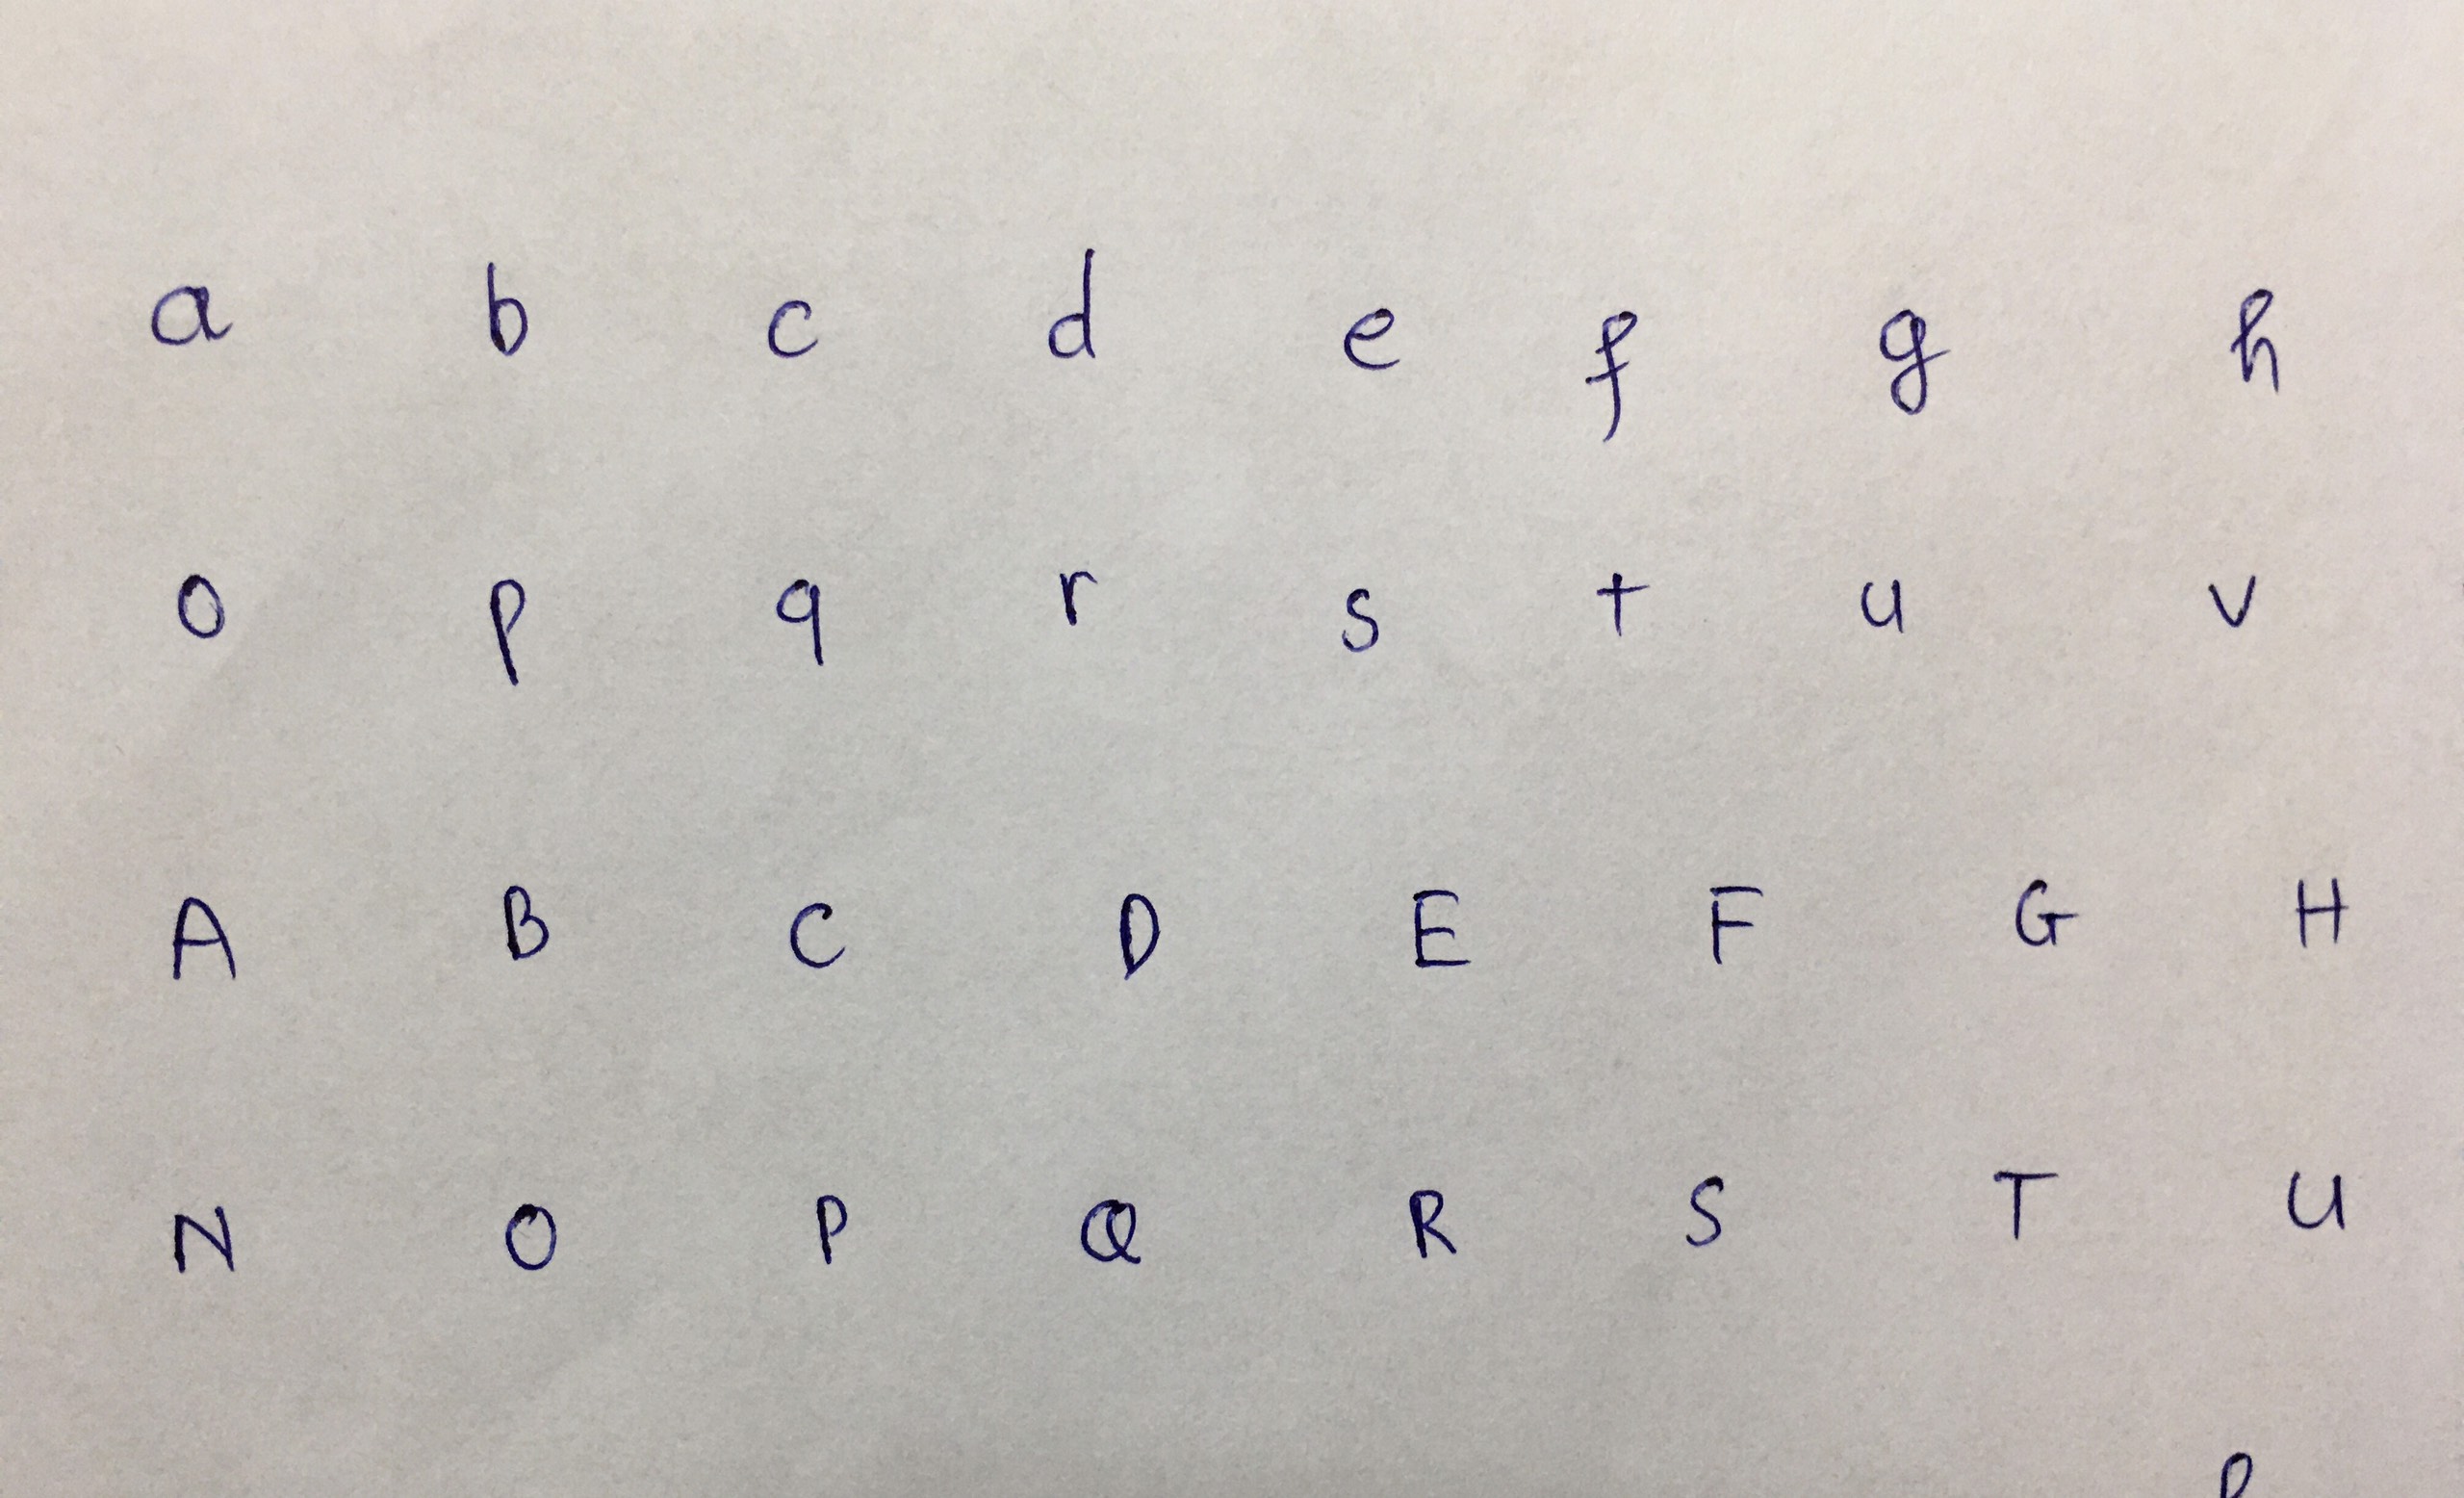 a b c d e f g h
o p q r s t u v
A B C D E F G H
N O P Q R S T U